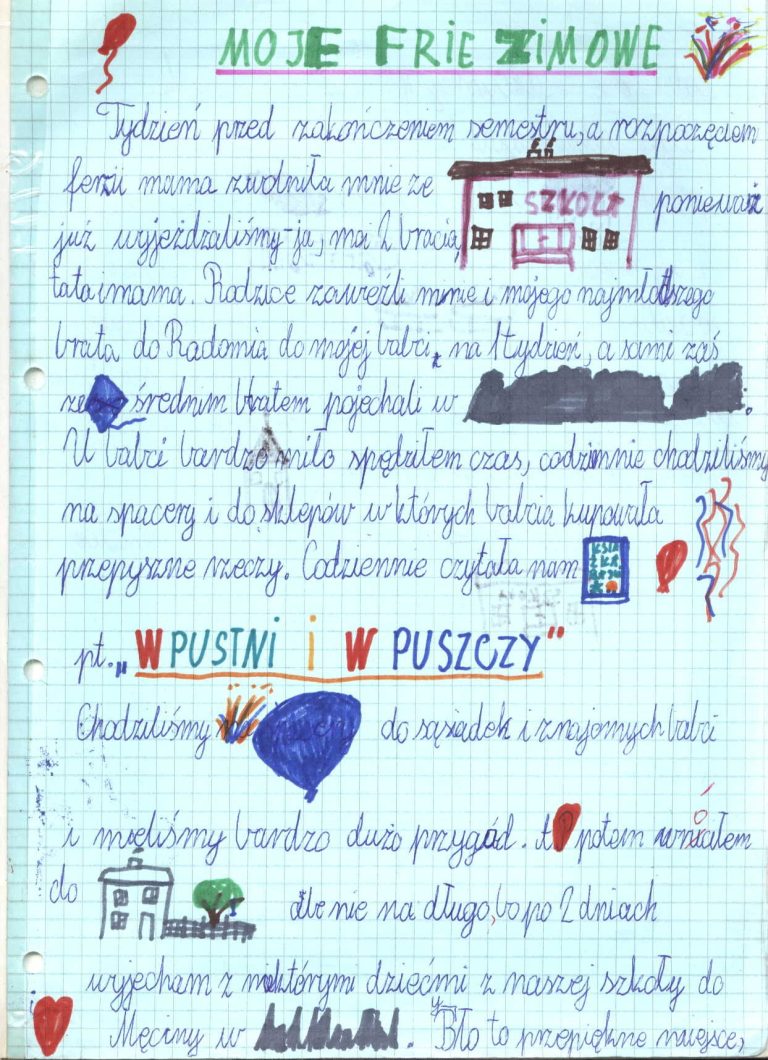 MOJE FRIE ZIMOWE
Tydzień przed zakończeniem semestru, a rozpoczęciem
ferii mama zwolniła mnie ze SZKOŁA ponieważ
już wyjeżdzaliśmy-ja, moi 2 bracia,
tata i mama. Rodzice zawieźli mnie i mojego najmłodszego
brata do Radomia do mojej babci, na 1 tydzień, a sami zaś
ze średnim bratem pojechali w .
U babci bardzo miło spędziłem czas, codzinnie chodziliśmy
na spacery i do sklepów w których babcia kupowała
przepyszne rzeczy. Codziennie czytała nam
pt. „W PUSTNI i W PUSZCZY"
Chodziliśmy do sąsiadek i znajomych babci
i mieliśmy bardzo dużo przygód. A potem wróciałem
do ale nie na długo, bo po 2 dniach
wyjecham z niektórymi dziećmi z naszej szkoły do
Męciny w . Było to przepiękne miejsce,